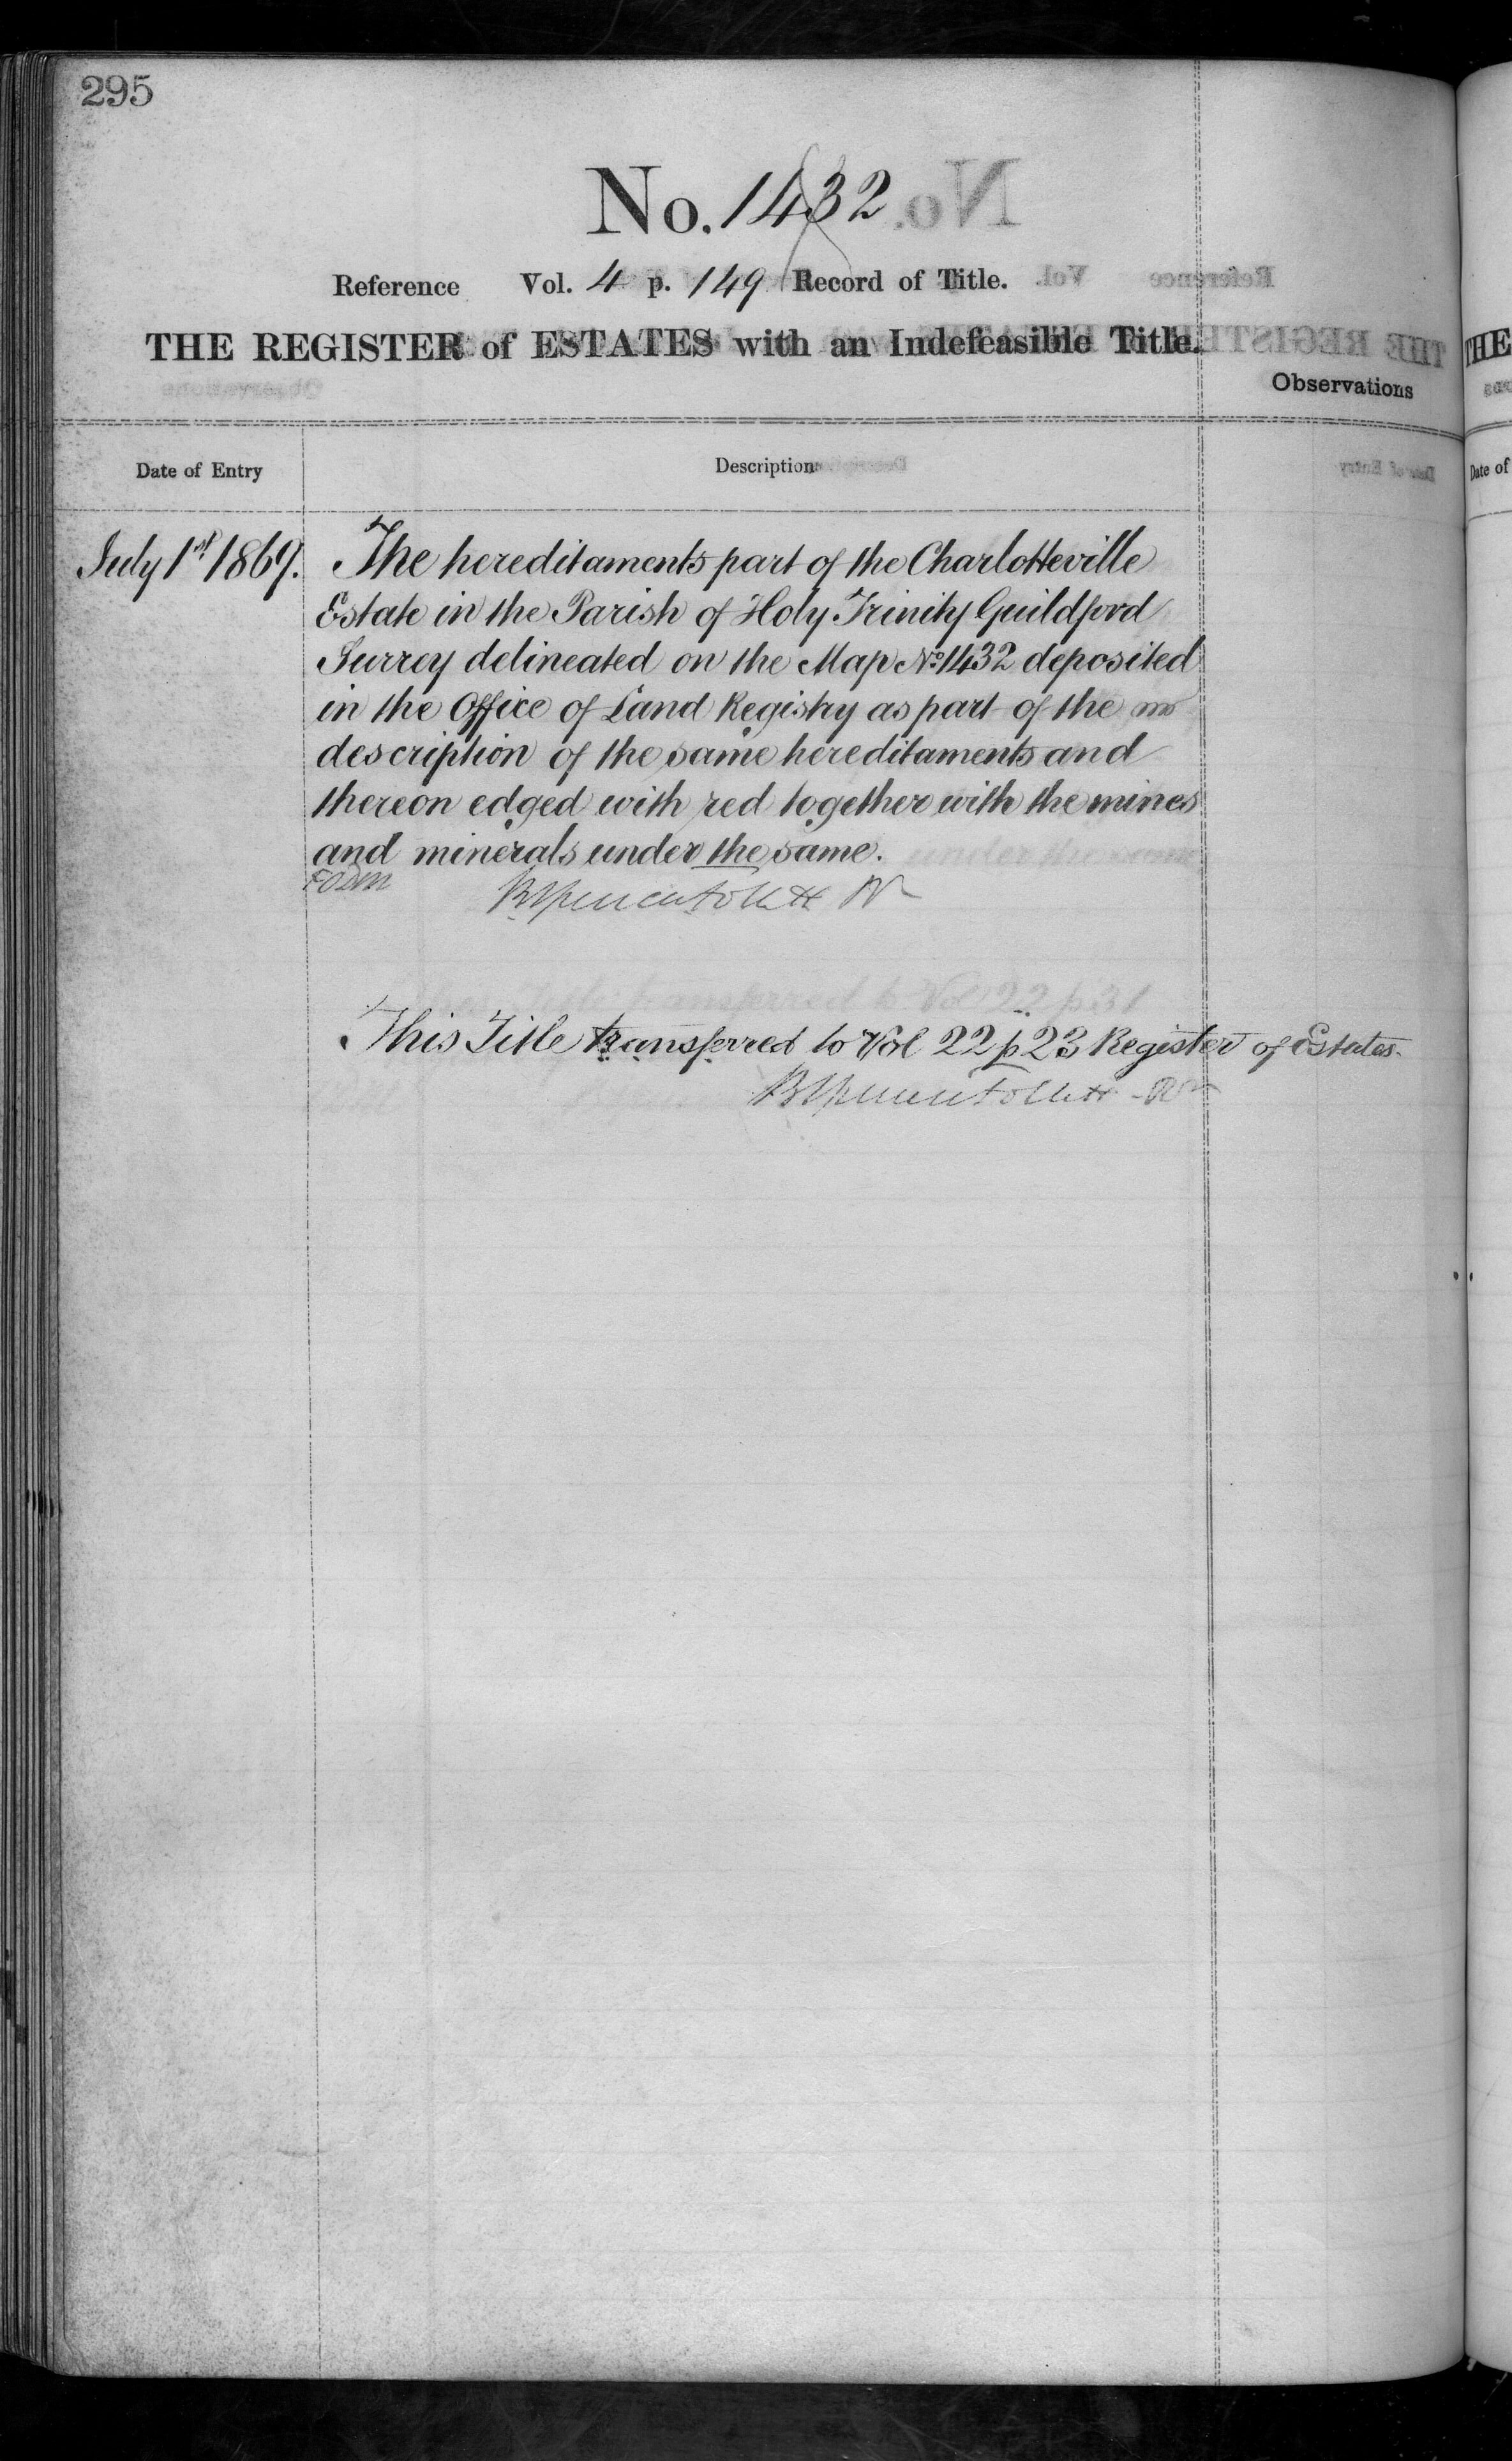 295
No. 1432
Reference Vol. 4 p. 149 Record of Title.
THE REGISTER of ESTATES with an Indefeasible Title.
Observations
Date of Entry
Description
July 1st 1869.
The hereditaments part of the Charlotteville
Estate in the Parish of Holy Trinity Guildford
Surrey delineated on the Map No 1432 deposited
in the Office of Land Registry as part of the
description of the same hereditaments and
thereon edged with red together with the mines
and minerals under the same.
This Title transferred to Vol 22 p 23 Register of Estates.
THE
Date of